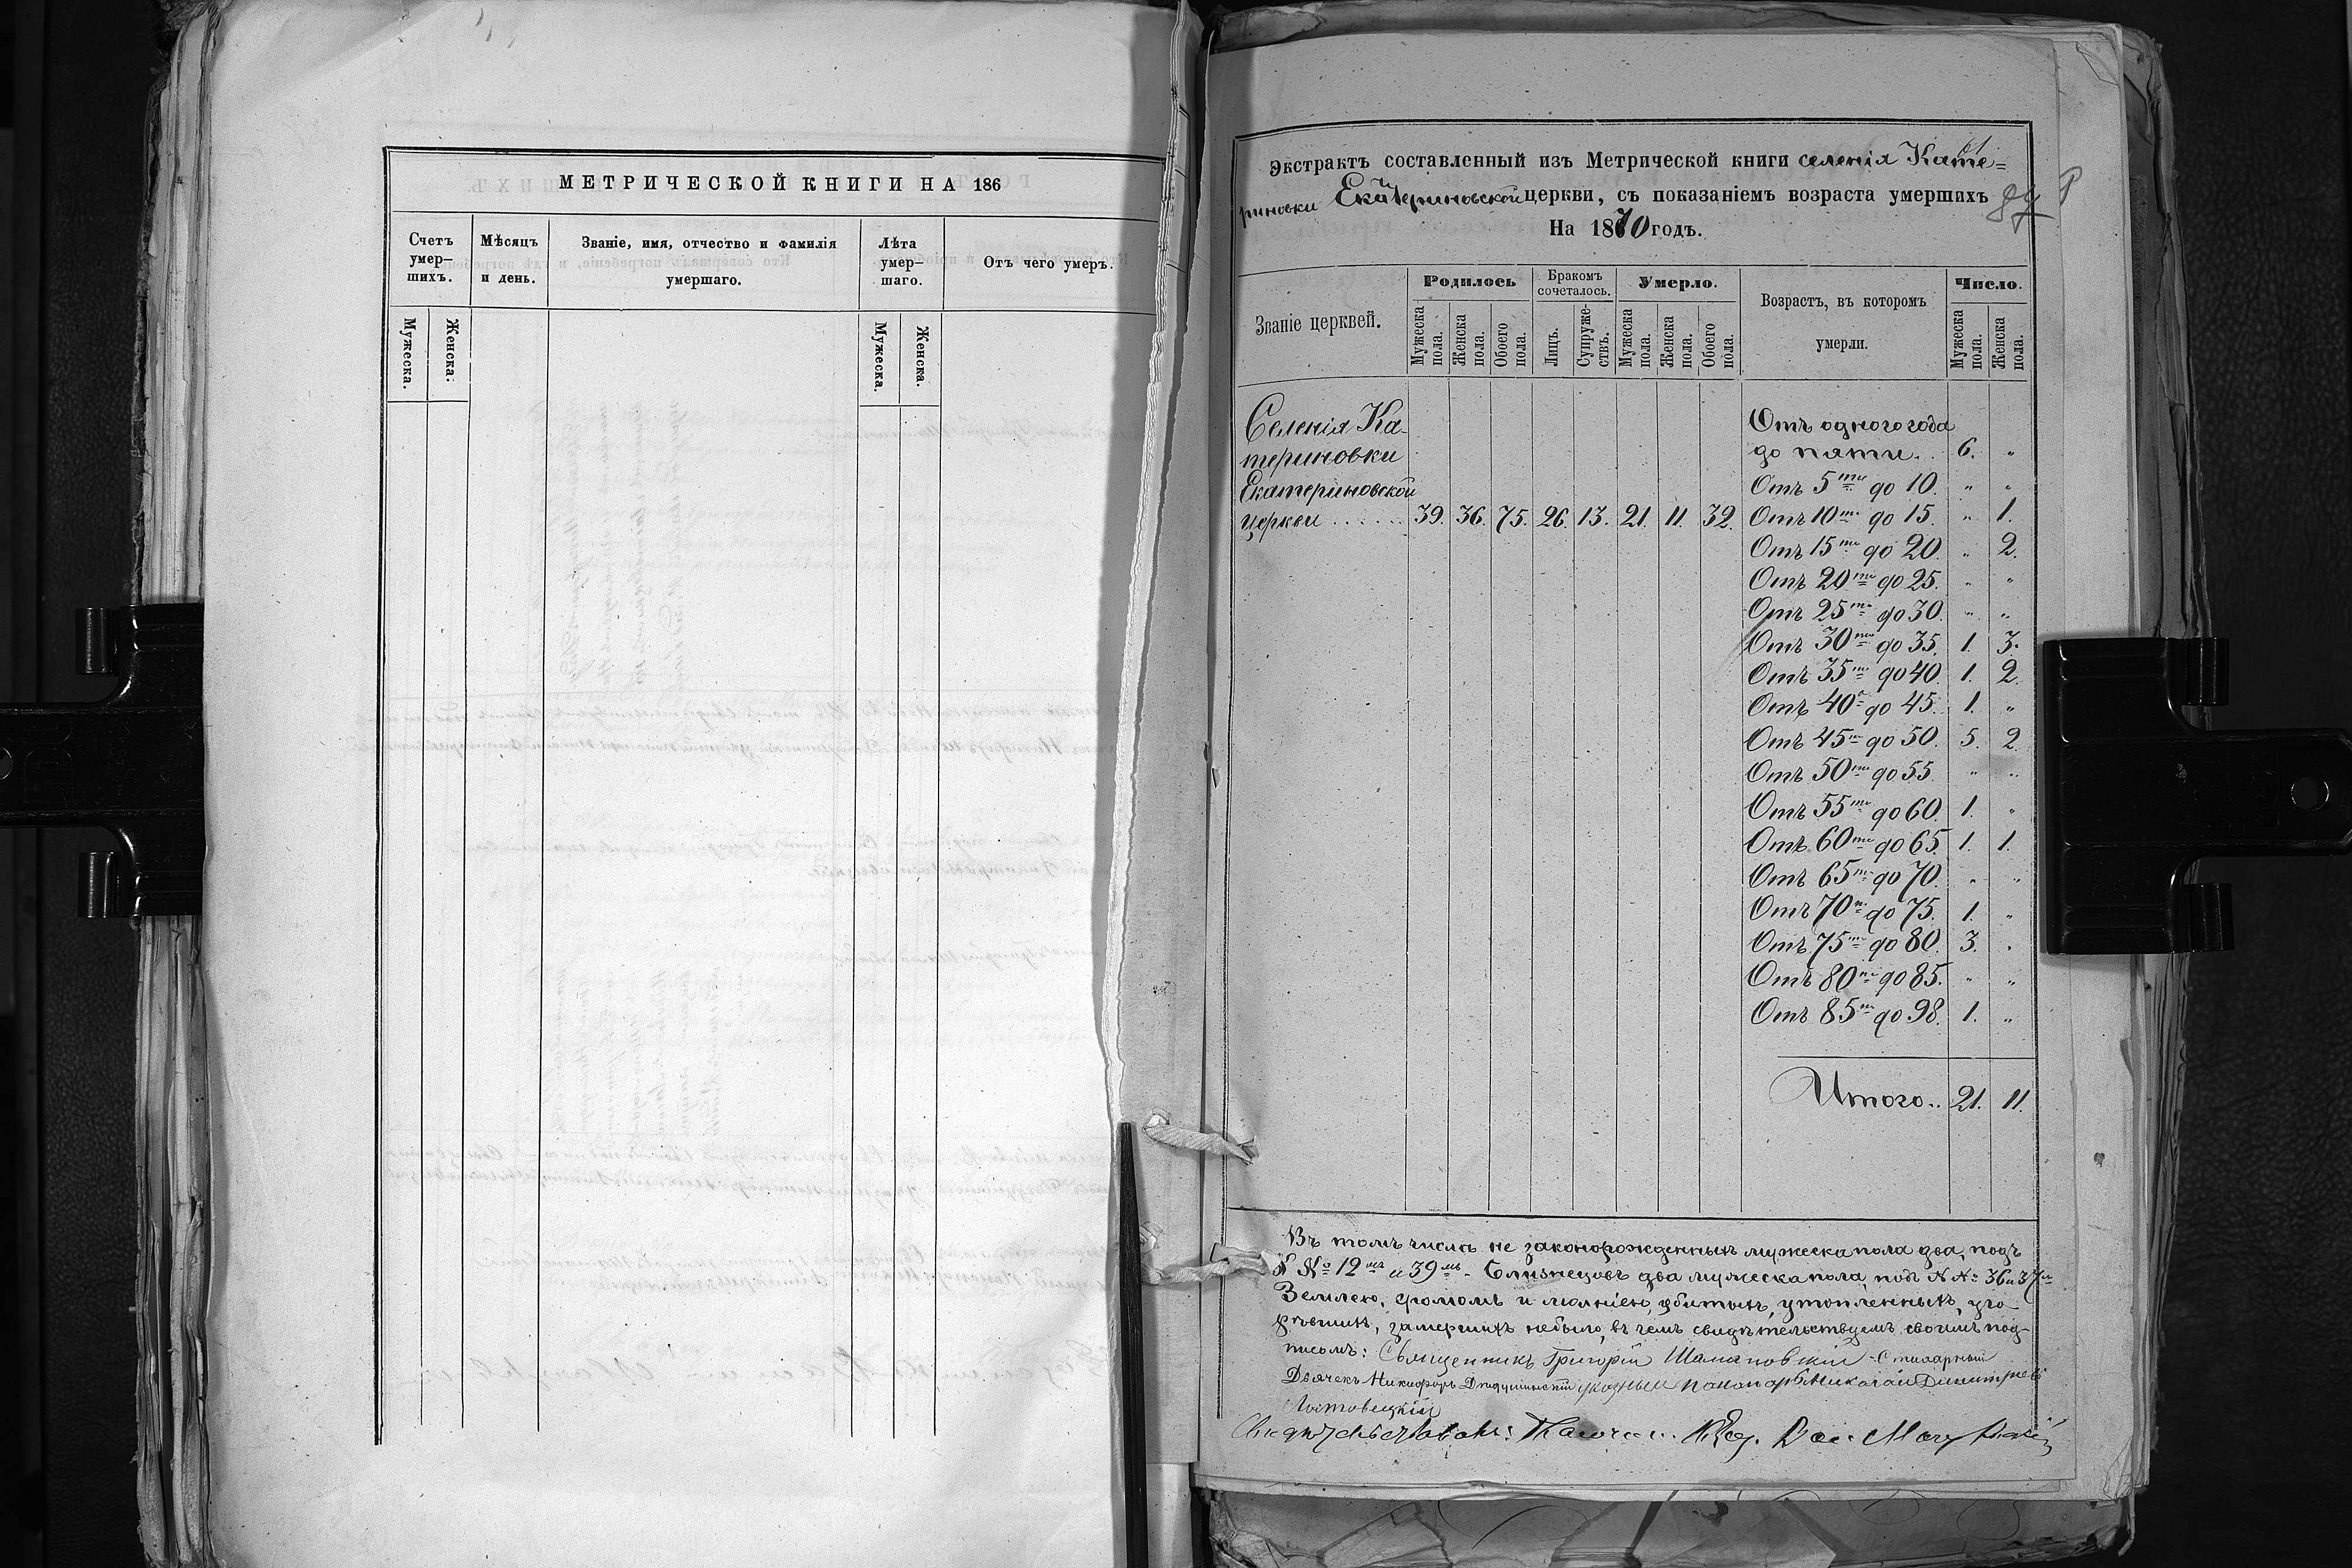 МЕТРИЧЕСКОЙ КНИГИ НА 186
Счетъ умер-шихъ.
Мѣсяцъ и день.
Званіе, имя, отчество и фамилія умершаго.
Лѣта умер-шаго.
Отъ чего умеръ.
Мужеска.
Женска.
Мужеска.
Женска.
Экстрактъ составленный изъ Метрической книги селенія Кате=
риновки Екатериновской церкви, съ показаніемъ возраста умершихъ
На 1870 годъ.
Званіе церквей.
Родилось
Бракомъ сочеталось.
Умерло.
Возрастъ, въ которомъ умерли.
Число.
Мужеска пола.
Женска пола.
Обоего пола.
Лицъ.
Супруже-ствъ.
Мужеска пола.
Женска пола.
Обоего пола.
Мужеска пола.
Женска пола.
Селенія Ка-
териновки
Екатериновской
церкви . . . . . . 39. 36. 75. 26. 13. 21. 11. 32.
Отъ одного года
до пяти. . 6. "
Отъ 5ти до 10. " "
Отъ 10ти до 15. " 1.
Отъ 15ти до 20. " 2.
Отъ 20ти до 25. " "
Отъ 25ти до 30. " "
Отъ 30ти до 35. 1. 3.
Отъ 35ти до 40. 1. 2.
Отъ 40а до 45. 1. "
Отъ 45ти до 50. 5. 2.
Отъ 50ти до 55. " "
Отъ 55ти до 60. 1. "
Отъ 60ти до 65. 1. 1.
Отъ 65ти до 70. " "
Отъ 70ти до 75. 1. "
Отъ 75ти до 80. 3. "
Отъ 80ти до 85. " "
Отъ 85ти до 98. 1. "
Итого.. 21. 11.
Въ томъ числѣ не законорожденныхъ мужеска пола два, подъ
N№ 12мъ и 39мъ - близнецовъ два мужеска пола, подъ N№ 36 и 37мъ
Землею, громомъ и молніею убитыхъ, утопленныхъ, уго-
рѣвшихъ, замерзшихъ небыло, въ чемъ свидѣтельствуемъ своимъ под-
писомъ: Священникъ Григорій Шамановскій
Дьячекъ Никифоръ указный пономарь Николай
Свидѣтельствовалъ: